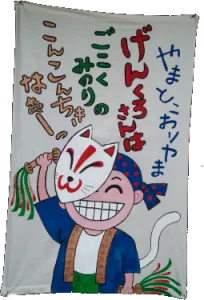 やまと、こおりやま
げんくろうさんは
ごこくみのりの
こんこんちき
なぁーっ